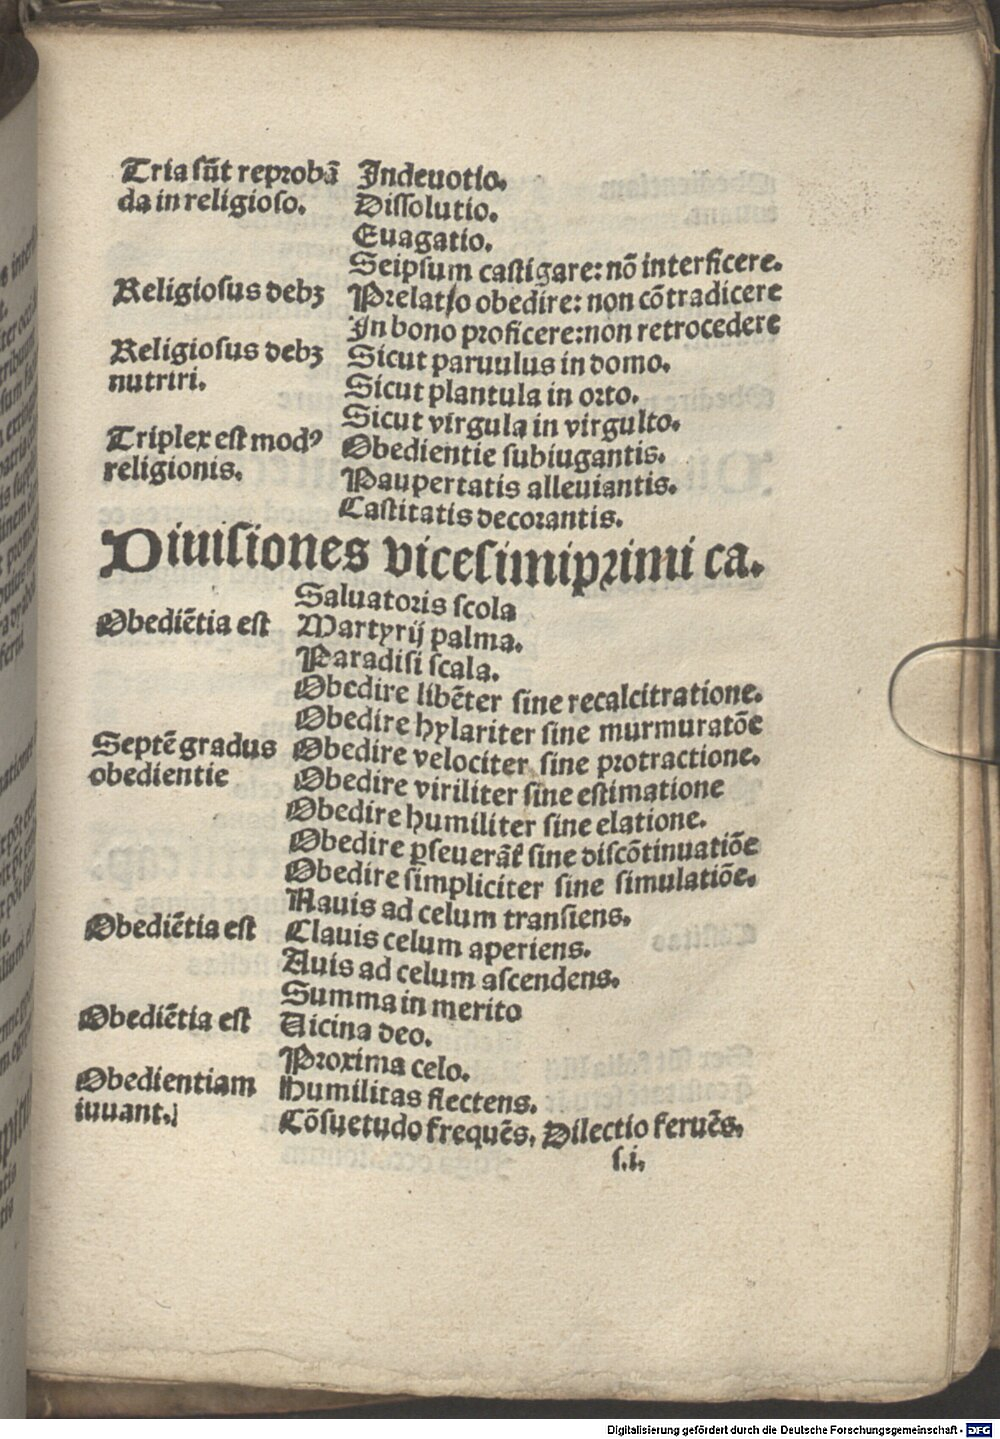 Tria sũt reprobã Indeuotio.
da in religioso. Dissolutio.
Euagatio.
Seipsum castigare: nõ interficere.
Religiosus debꝫ Prelatio obedire: non cõtradicere
In bono proficere: non retrocedere
Religiosus debꝫ Sicut paruulus in domo.
nutriri. Sicut plantula in orto.
Sicut virgula in virgulto.
Triplex est modꝰ Obedientie subiugantis.
religionis. Paupertatis alleuiantis.
Castitatis decorantis.
Diuisiones vicesimiprimi ca.
Saluatoris scola
Obediẽtia est Martyrij palma.
Paradisi scala.
Obedire libẽter sine recalcitratione.
Obedire hylariter sine murmuratõe
Septẽ gradus Obedire velociter sine protractione.
obedientie Obedire viriliter sine estimatione
Obedire humiliter sine elatione.
Obedire ꝑseuerãt sine discõtinuatiõe
Obedire simpliciter sine simulatiõe.
Nauis ad celum transiens.
Obediẽtia est Clauis celum aperiens.
Auis ad celum ascendens.
Summa in merito
Obediẽtia est Vicina deo.
Proxima celo.
Obedientiam Humilitas flectens.
iuuant. Cõsuetudo frequẽs. Dilectio feruẽs.
s.i.
Digitalisierung gefördert durch die Deutsche Forschungsgemeinschaft - DFG